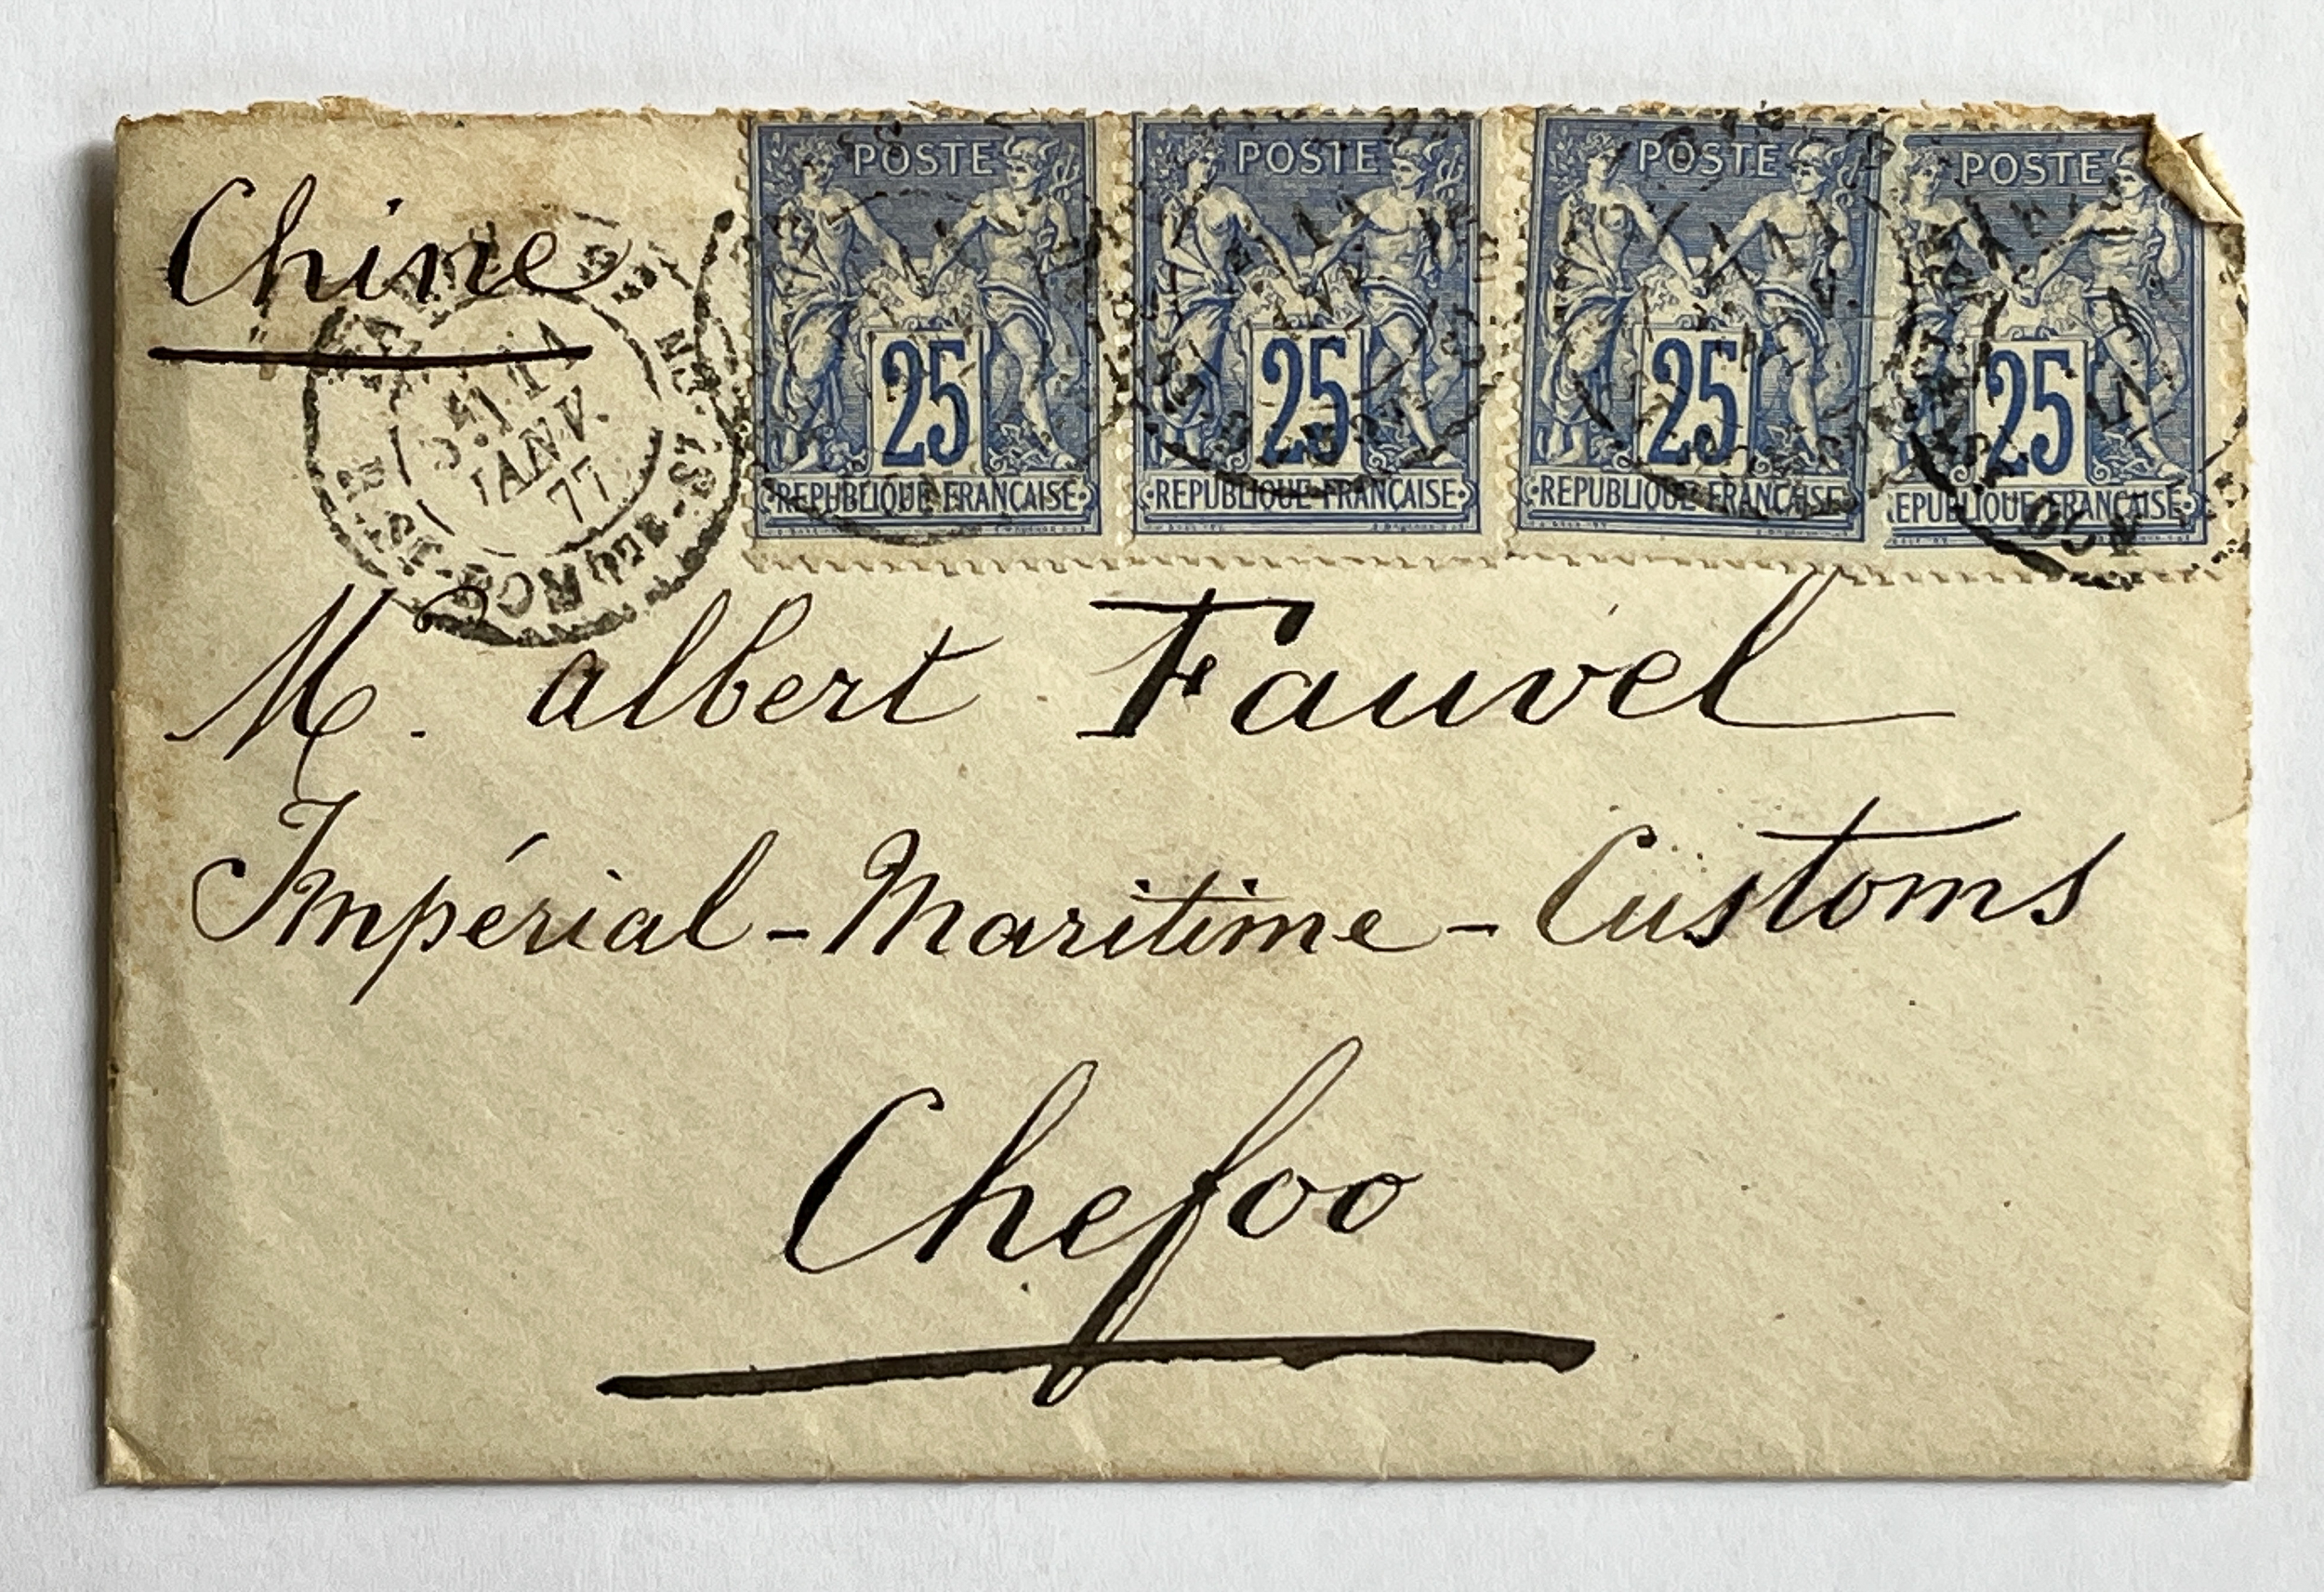 Chine
POSTE POSTE POSTE POSTE
25 25 25 25
REPUBLIQUE FRANÇAISE REPUBLIQUE FRANÇAISE REPUBLIQUE FRANÇAISE EPUBLIQUE FRANÇAISE
JANV.
77
M. Albert Fauvel
Impérial-Maritime-Customs
Chefoo